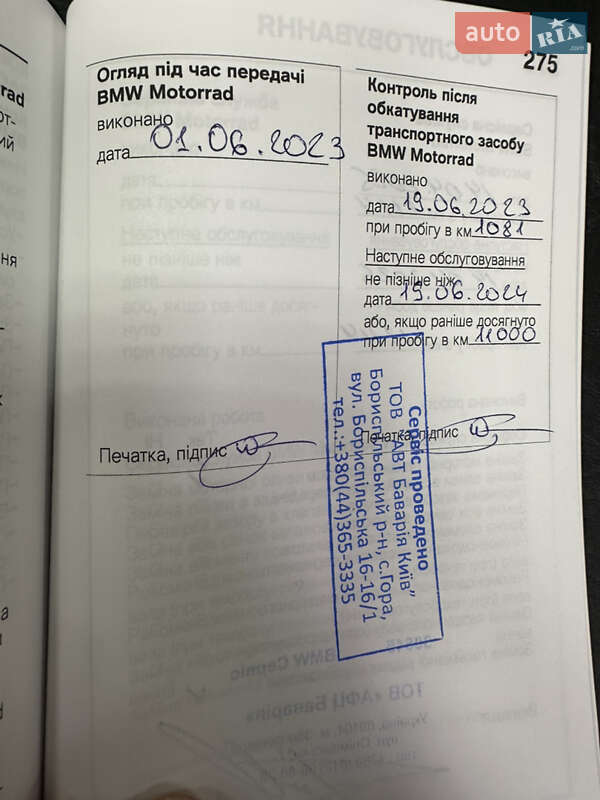 auto RIA.com
275
Огляд під час передачі
BMW Motorrad
виконано
дата 01.06.2023
Печатка, підпис
Контроль після
обкатування
транспортного засобу
BMW Motorrad
виконано
дата 19.06.2023
при пробігу в км 1081
Наступне обслуговування
не пізніше ніж
дата 19.06.2024
або, якщо раніше досягнуто
при пробігу в км 11000
Печатка, підпис
Сервіс проведено
ТОВ "АВТ Баварія Київ"
Бориспільський р-н, с.Гора,
вул. Бориспільська 16-16/1
тел.:+380(44)365-3335